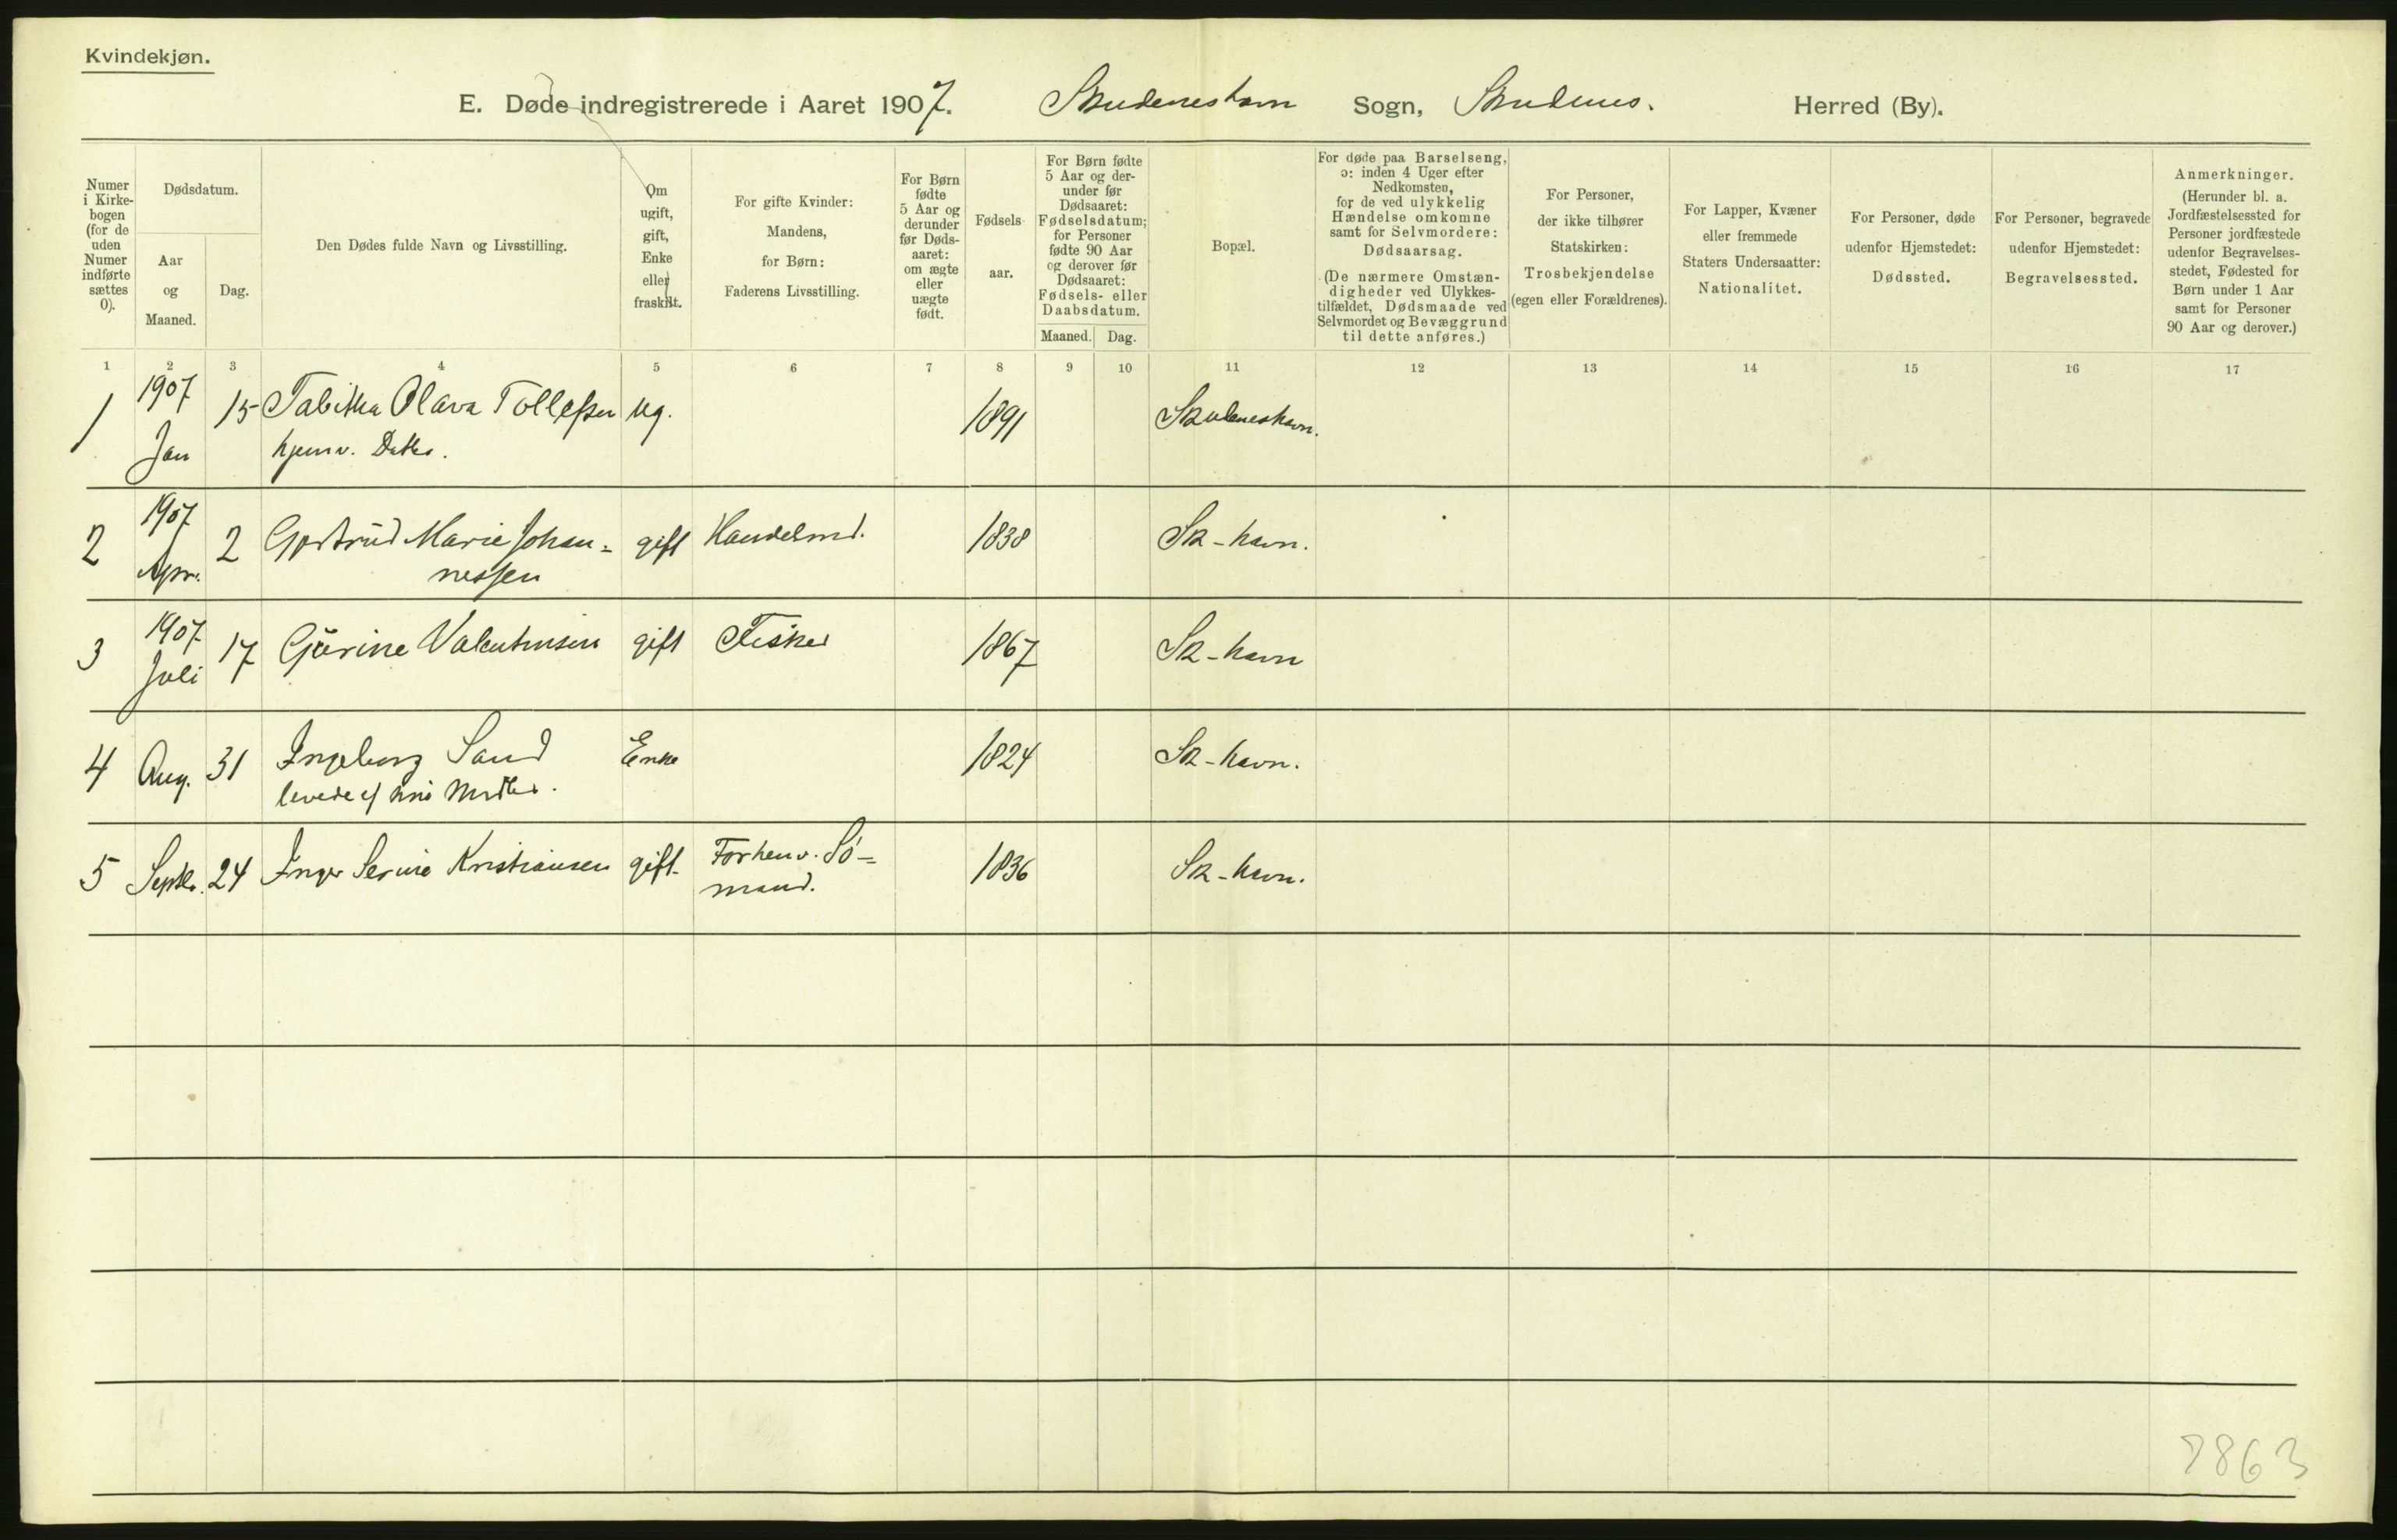 Kvindekjøn.
E. Døde indregistrerede i Aaret 1907. Skudeneshavn Sogn, Skudenes. Herred (By).
Numer
i Kirke-
bogen
(for de
uden
Numer
indførte
sættes
0).
Dødsdatum.
Aar
og
Maaned.
Dag.
Den Dødes fulde Navn og Livsstilling.
Om
ugift,
gift,
Enke
eller
fraskilt.
For gifte Kvinder:
Mandens,
for Børn:
Faderens Livsstilling.
For Børn
fødte
5 Aar og
derunder
før Døds-
aaret:
om ægte
eller
uægte
født.
Fødsels-
aar.
For Børn fødte
5 Aar og der-
under før
Dødsaaret:
Fødselsdatum;
for Personer
fødte 90 Aar
og derover før
Dødsaaret:
Fødsels- eller
Daabsdatum.
Maaned. Dag.
Bopæl.
For døde paa Barselseng,
ɔ: inden 4 Uger efter
Nedkomsten,
for de ved ulykkelig
Hændelse omkomne
samt for Selvmordere:
Dødsaarsag.
(De nærmere Omstæn-
digheder ved Ulykkes-
tilfældet, Dødsmaade ved
Selvmordet og Bevæggrund
til dette anføres.)
For Personer,
der ikke tilhører
Statskirken:
Trosbekjendelse
(egen eller Forældrenes).
For Lapper, Kvæner
eller fremmede
Staters Undersaatter:
Nationalitet.
For Personer, døde
udenfor Hjemstedet:
Dødssted.
For Personer, begravede
udenfor Hjemstedet:
Begravelsessted.
Anmerkninger.
(Herunder bl. a.
Jordfæstelsessted for
Personer jordfæstede
udenfor Begravelses-
stedet, Fødested for
Børn under 1 Aar
samt for Personer
90 Aar og derover.)
1 2 3 4 5 6 7 8 9 10 11 12 13 14 15 16 17
1 1907 15 Tabitha Olava Tollefsen ug. 1891 Skudeneshavn.
Jan hjemv. Datter.
2 1907 2 Gjertrud Marie Johan= gift Handelsmd. 1838 Sk-havn.
Apr. nessen
3 1907 17 Gurine Valentinsen gift Fisker 1867 Sk-havn
Juli
4 Aug. 31 Ingeborg Sand Enke 1824 Sk-havn.
levede af sine Midler.
5 Septbr. 24 Inger Serine Kristiansen gift. Forhenv. Sø= 1836 Sk-havn.
mand.
7863